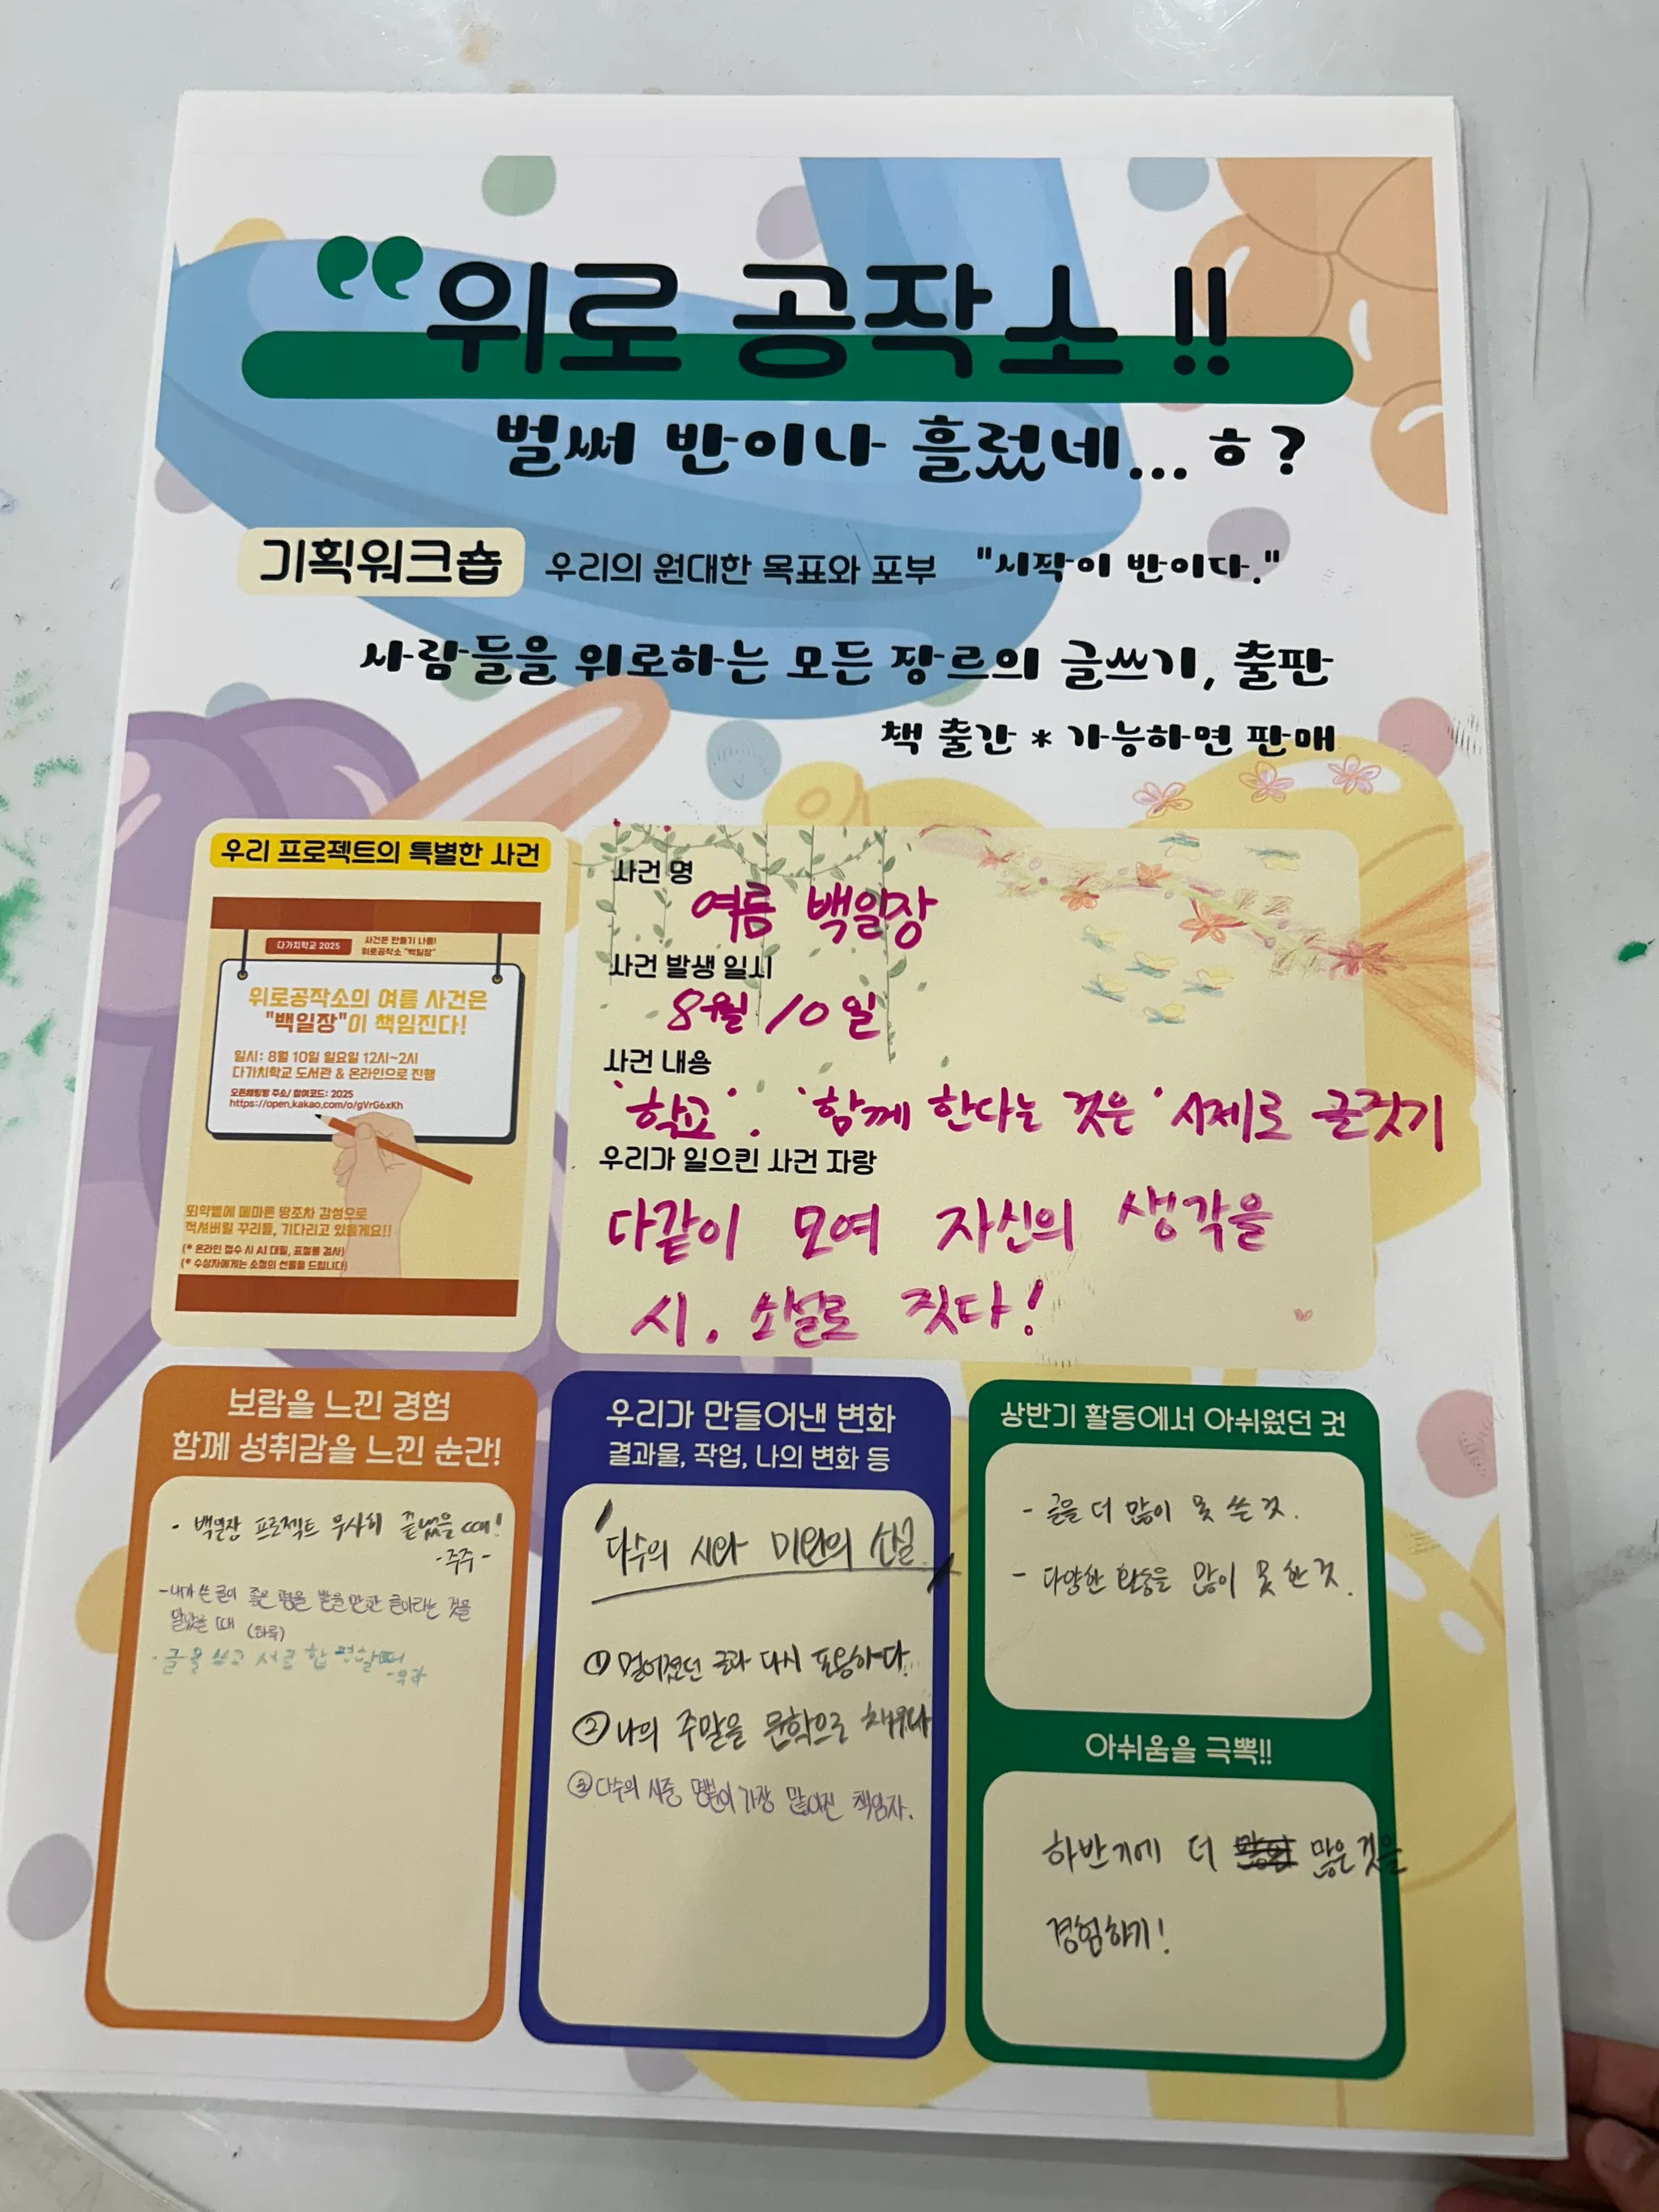 “위로 공작소!!
벌써 반이나 흘렀네...ㅎ?
기획워크숍 우리의 원대한 목표와 포부 "시작이 반이다."
사람들을 위로하는 모든 장르의 글쓰기, 출판
책 출간 * 가능하면 판매
우리 프로젝트의 특별한 사건
다가치학교 2025
사건은 만들기 나름!
위로공작소 "백일장"
위로공작소의 여름 사건은
"백일장"이 책임진다!
일시: 8월 10일 일요일 12시~2시
다가치학교 도서관 & 온라인으로 진행
오픈채팅방 주소/ 참여코드: 2025
https://open.kakao.com/o/gVrG6xKh
뙤약볕에 메마른 땅조차 감성으로
적셔버릴 꾸러들, 기다리고 있을게요!!
(* 온라인 접수 시 AI 대필, 표절률 검사)
(* 수상자에게는 소정의 선물을 드립니다)
사건 명
여름 백일장
사건 발생 일시
8월 10일
사건 내용
'학교', '함께 한다는 것은' 시제로 글짓기
우리가 일으킨 사건 자랑
다같이 모여 자신의 생각을
시, 소설로 짓다!
보람을 느낀 경험
함께 성취감을 느낀 순간!
- 백일장 프로젝트 무사히 끝냈을 때!
- 주주 -
- 내가 쓴 글이 좋은 평을 받을만한 글이라는 것을
알았을 때 (하루)
· 글을 쓰고 서로 합평할때
우리가 만들어낸 변화
결과물, 작업, 나의 변화 등
다수의 시와 미완의 소설
① 멀어졌던 글과 다시 포옹하다.
② 나의 주말을 문학으로 채우다
③ 다수의 시중 명분이 가장 많아진 책임자.
상반기 활동에서 아쉬웠던 것
- 글을 더 많이 못 쓴 것.
- 다양한 활동을 많이 못 한 것.
아쉬움을 극뽁!!
하반기에 더 많은 것을
경험하기!